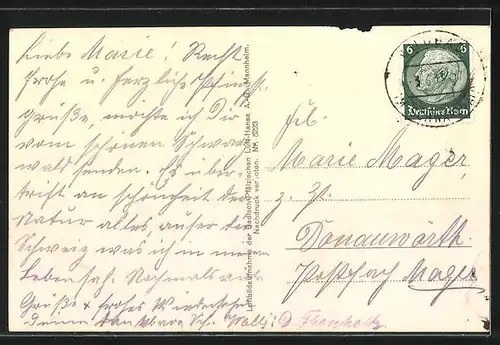 Liebe Marie! Recht
frohe u. herzliche Pfingst-
grüße, möchte ich Dir
vom schönen Schwarz-
wald senden. Es über-
trift an schönheit der
Natur alles, außer der
Schweiz was ich in meinem
Leben sah. Nochmals viele
Grüße & frohes Wiedersehen
Deine dankbare
Luftbildaufnahme der Badisch-Pfälzischen Luft-Hansa A.-G. Mannheim.
Nachdruck verboten. Nr. 6223
6 6
Deutsches Reich
Frl.
Marie Mager
z. Zt.
Donauwörth
Postfach Mager